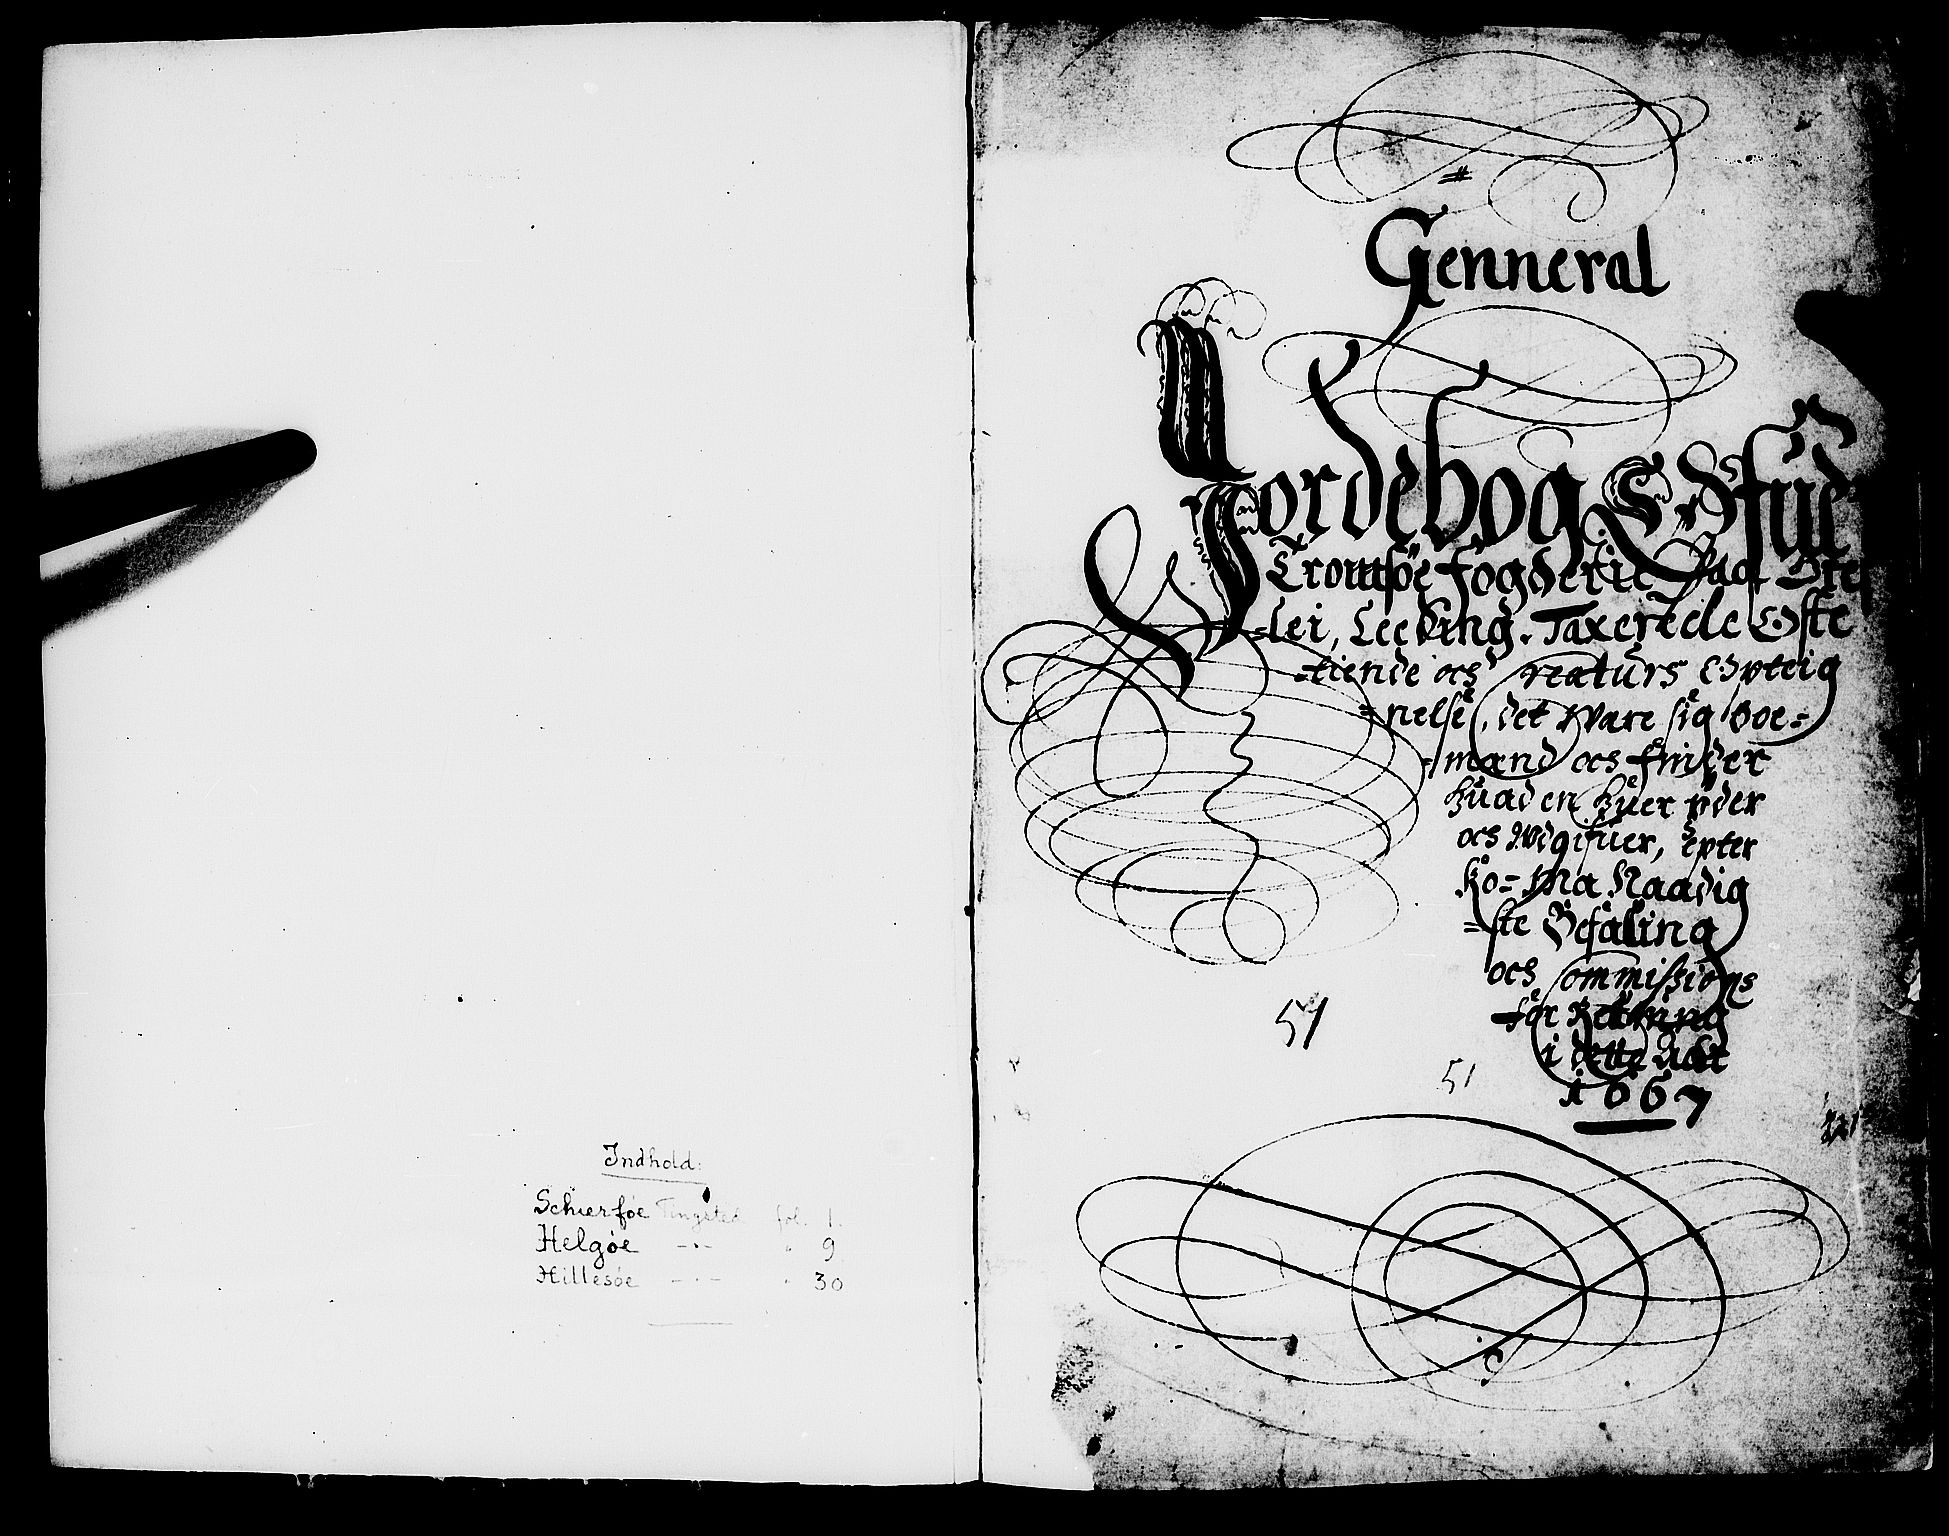 Indhold:
Schierføe Tingsted fol. 1.
Helgøe -"- " 9
Hillesøe -"- " 30
Genneral
Jordebog Offuer
Tromsøe fogderie Paa
=lei, Leeding. Taxerede Offte
=tiende och reeturs Opteig
=nelse, det Ware sig Boe=
=mænd och finder
huad en huer yder
och Udgifuer, epter
Ko= Ma Naadig
=ste Befaling
och Commissions
för Retning
i dette Aar
1667
51
51